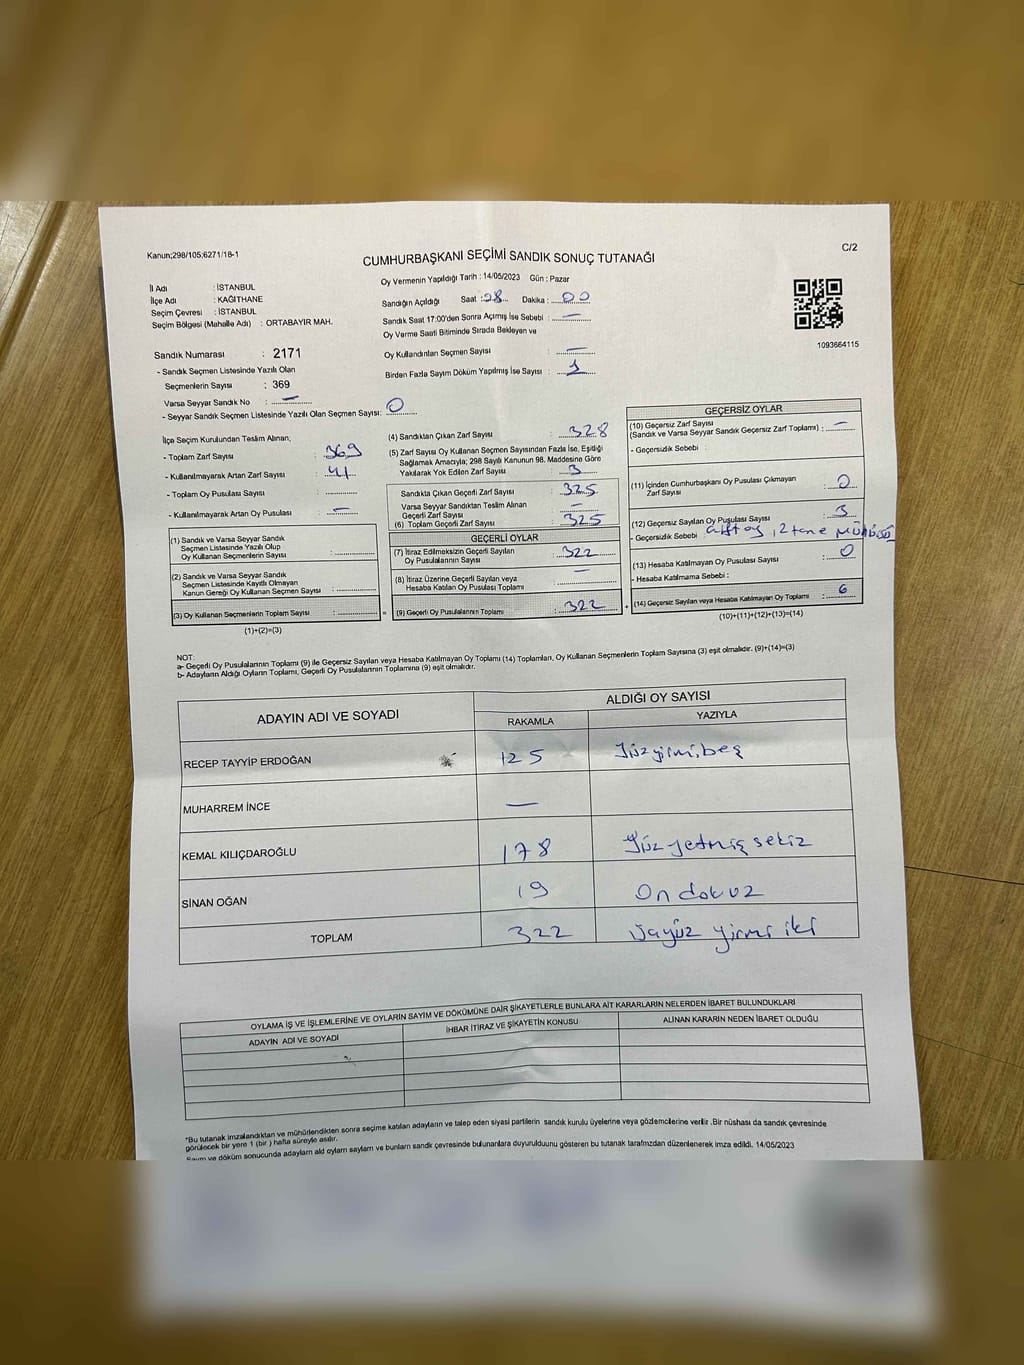 Kanun;298/105;6271/18-1
C/2
CUMHURBAŞKANI SEÇİMİ SANDIK SONUÇ TUTANAĞI
İl Adı : İSTANBUL
İlçe Adı : KAĞITHANE
Seçim Çevresi : İSTANBUL
Seçim Bölgesi (Mahalle Adı) : ORTABAYIR MAH.
Oy Vermenin Yapıldığı Tarih : 14/05/2023 Gün : Pazar
Sandığın Açıldığı Saat : 08 Dakika : 00
Sandık Saat 17:00'den Sonra Açımış İse Sebebi : —
Oy Verme Saati Bitiminde Sırada Bekleyen ve
Oy Kullandırılan Seçmen Sayısı : —
Birden Fazla Sayım Döküm Yapılmış İse Sayısı : 1
1093664115
Sandık Numarası : 2171
- Sandık Seçmen Listesinde Yazılı Olan
Seçmenlerin Sayısı : 369
Varsa Seyyar Sandık No : —
- Seyyar Sandık Seçmen Listesinde Yazılı Olan Seçmen Sayısı: 0
İlçe Seçim Kurulundan Teslim Alınan;
- Toplam Zarf Sayısı : 369
- Kullanılmayarak Artan Zarf Sayısı : 41
- Toplam Oy Pusulası Sayısı :
- Kullanılmayarak Artan Oy Pusulası : —
(1) Sandık ve Varsa Seyyar Sandık
Seçmen Listesinde Yazılı Olup
Oy Kullanan Seçmenlerin Sayısı :
(2) Sandık ve Varsa Seyyar Sandık
Seçmen Listesinde Kayıtlı Olmayan
Kanun Gereği Oy Kullanan Seçmen Sayısı :
(3) Oy Kullanan Seçmenlerin Toplam Sayısı : =
(1)+(2)=(3)
(4) Sandıktan Çıkan Zarf Sayısı : 328
(5) Zarf Sayısı Oy Kullanan Seçmen Sayısından Fazla İse, Eşitliği
Sağlamak Amacıyla; 298 Sayılı Kanunun 98. Maddesine Göre
Yakılarak Yok Edilen Zarf Sayısı : 3
Sandıkta Çıkan Geçerli Zarf Sayısı : 325
Varsa Seyyar Sandıktan Teslim Alınan
Geçerli Zarf Sayısı : —
(6) Toplam Geçerli Zarf Sayısı : 325
GEÇERLİ OYLAR
(7) İtiraz Edilmeksizin Geçerli Sayılan
Oy Pusulalarının Sayısı : 322
(8) İtiraz Üzerine Geçerli Sayılan veya
Hesaba Katılan Oy Pusulası Toplamı : —
(9) Geçerli Oy Pusulalarının Toplamı : 322 +
GEÇERSİZ OYLAR
(10) Geçersiz Zarf Sayısı
(Sandık ve Varsa Seyyar Sandık Geçersiz Zarf Toplamı) : —
- Geçersizlik Sebebi :
(11) İçinden Cumhurbaşkanı Oy Pusulası Çıkmayan
Zarf Sayısı : 0
(12) Geçersiz Sayılan Oy Pusulası Sayısı : 3
- Geçersizlik Sebebi çift oy, 2 tane
(13) Hesaba Katılmayan Oy Pusulası Sayısı : 0
- Hesaba Katılmama Sebebi :
(14) Geçersiz Sayılan veya Hesaba Katılmayan Oy Toplamı : 6
(10)+(11)+(12)+(13)=(14)
NOT:
a- Geçerli Oy Pusulalarının Toplamı (9) ile Geçersiz Sayılan veya Hesaba Katılmayan Oy Toplamı (14) Toplamları, Oy Kullanan Seçmenlerin Toplam Sayısına (3) eşit olmalıdır. (9)+(14)=(3)
b- Adayların Aldığı Oyların Toplamı, Geçerli Oy Pusulalarının Toplamına (9) eşit olmalıdır.
ADAYIN ADI VE SOYADI
ALDIĞI OY SAYISI
RAKAMLA YAZIYLA
RECEP TAYYİP ERDOĞAN 125 Yüzyirmibeş
MUHARREM İNCE —
KEMAL KILIÇDAROĞLU 178 Yüzyetmiş sekiz
SİNAN OĞAN 19 On dokuz
TOPLAM 322 üçyüz yirmi iki
OYLAMA İŞ VE İŞLEMLERİNE VE OYLARIN SAYIM VE DÖKÜMÜNE DAİR ŞİKAYETLERLE BUNLARA AİT KARARLARIN NELERDEN İBARET BULUNDUKLARI
ADAYIN ADI VE SOYADI İHBAR İTİRAZ VE ŞİKAYETİN KONUSU ALINAN KARARIN NEDEN İBARET OLDUĞU
*Bu tutanak imzalandıktan ve mühürlendikten sonra seçime katılan adayların ve talep eden siyasi partilerin sandık kurulu üyelerine veya gözlemcilerine verilir .Bir nüshası da sandık çevresinde
görülecek bir yere 1 (bir ) hafta süreyle asılır.
Sayım ve döküm sonucunda adayların aldı oyların sayıları ve bunların sandık çevresinde bulunanlara duyurulduunu gösteren bu tutanak tarafımızdan düzenlenerek imza edildi. 14/05/2023